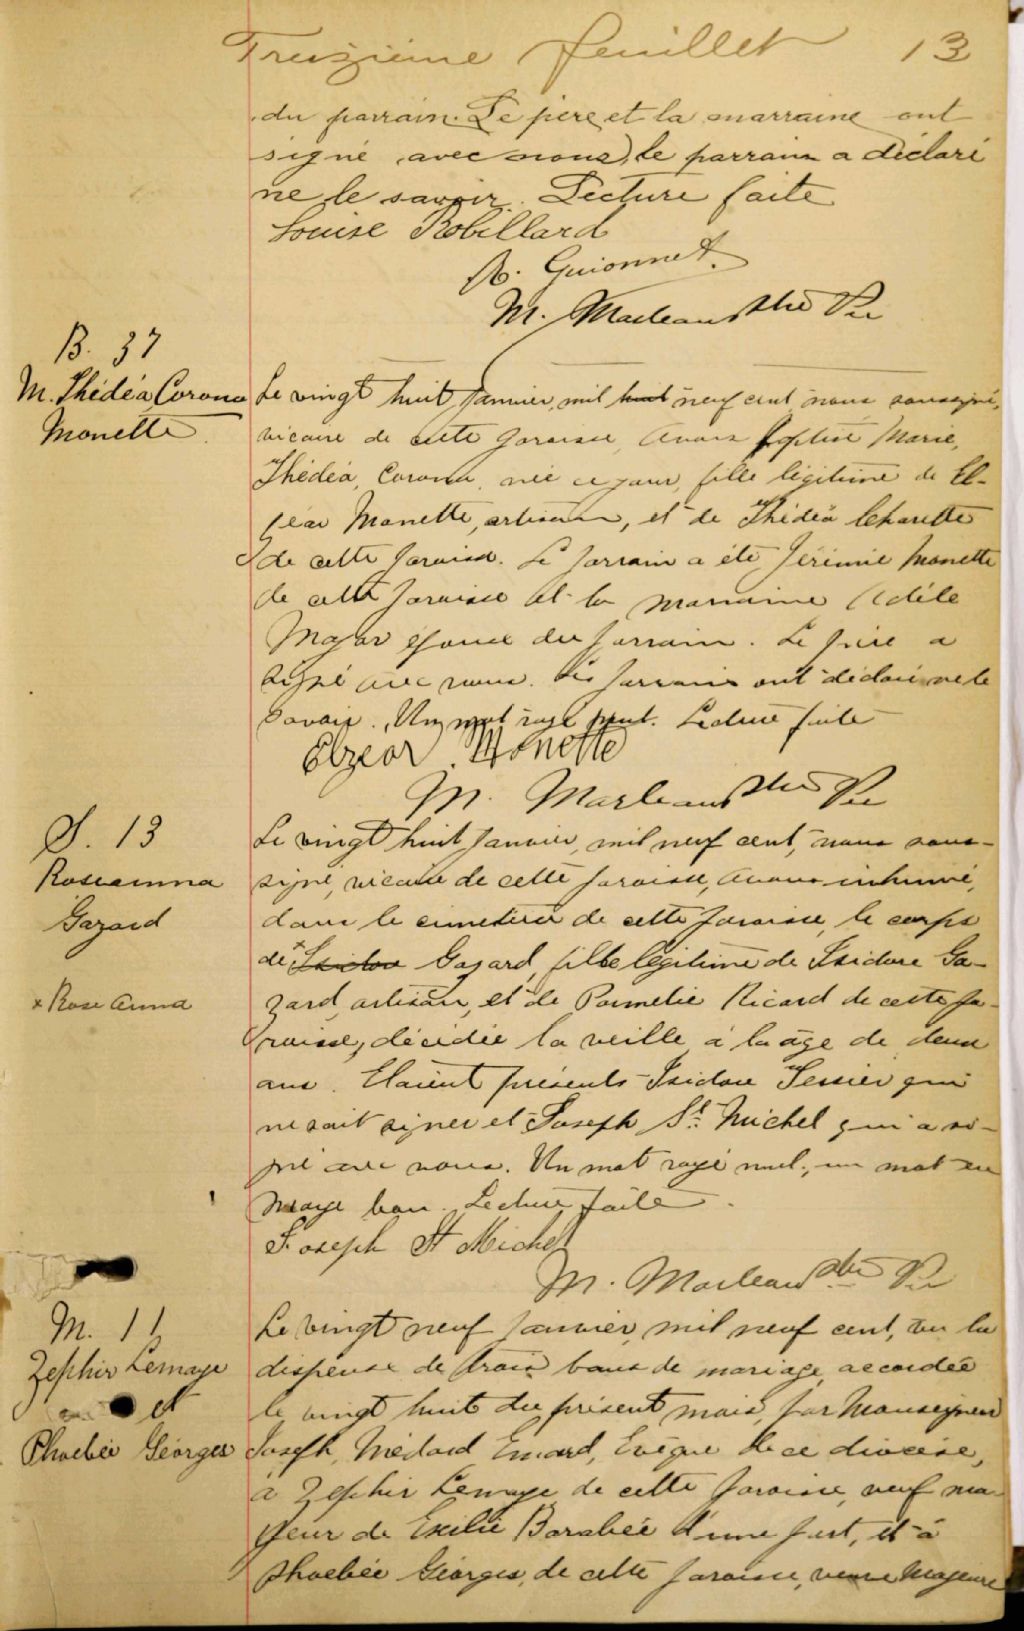 Treizième feuillet 13
du parrain. Le père et la marraine ont
signé avec nous, le parrain a déclaré
ne le savoir. Lecture faite
Louise Robillard
A. Guionnet
M. Marleau ptre Vic
B. 37
M. Thédéa Corona
Monette
Le vingt huit Janvier, mil huit neuf cent, nous soussigné,
vicaire de cette paroisse, avons baptisé Marie,
Thédéa, Corona, née ce jour, fille légitime de El-
zéar Monette, artisan, et de Thédéa Echarette
de cette paroisse. Le parrain a été Jérémie Monette
de cette paroisse et la marraine Adèle
Major épouse du parrain. Le père a
signé avec nous. Les parrains ont déclaré ne le
savoir. Un mot rayé nul. Lecture faite
Elzear Monette
M. Marleau ptre Vic
S. 13
Roseanna
Gazard
x Rose Anna
Le vingt huit Janvier, mil neuf cent, nous sous-
signé, vicaire de cette paroisse, avons inhumé,
dans le cimetière de cette paroisse, le corps
de x Isidore Gazard, fille légitime de Isidore Ga-
zard, artisan, et de Parmelie Ricard de cette pa-
roisse, décédée la veille à la âge de deux
ans. Etaient présents Isidore Tessier qui
ne sait signer et Joseph St. Michel qui a si-
gné avec nous. Un mot rayé nul, un mot en
marge bon. Lecture faite.
Joseph St Michel
M. Marleau ptre Vic
M. 11
Zéphir Lemaye
et
Phoebée Géorges
Le vingt neuf Janvier, mil neuf cent, vu la
dispense de trois bans de mariage accordée
le vingt huit du présent mois, par Monseigneur
Joseph, Médard Emard, Evêque de ce diocèse,
à Zéphir Lemaye de cette paroisse, veuf ma-
jeur de Exilie Barabée d'une part, et à
Phoebée Géorges, de cette paroisse, veuve majeure